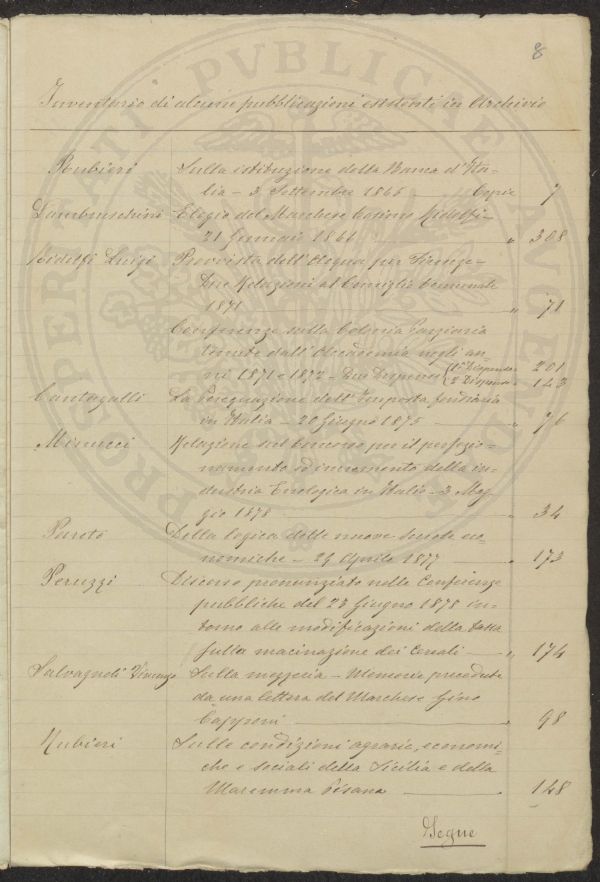 8
Inventario di alcune pubblicazioni esistenti in Archivio
Rubieri Sulla istituzione della Banca d'Ita=
lia — 3 Settembre 1865 Copie 7
Lambruschini Elogio del Marchese Cosimo Ridolfi —
21 Gennaio 1866 " 308
Ridolfi Luigi Provvista dell'Acqua per Firenze —
Due Relazioni al Consiglio Comunale
1871 " 71
Conferenze sulla Colonia Parziaria
tenute dall'Accademia negli an=
ni 1871 e 1872 — Due Dispense (1ª Dispensa 201
(2ª Dispensa " 143
Cantagalli La perequazione dell'Imposta fondiaria
in Italia — 20 Giugno 1875 — " 76
Minucci Relazione sul Concorso per il perfezio=
namento ed incremento della in=
dustria Enologica in Italia — 3 Mag=
gio 1878 " 34
Pareto Della logica delle nuove scuole eco=
nomiche — 29 Aprile 1877 " 173
Peruzzi Discorso pronunziato nelle Conferenze
pubbliche del 23 Giugno 1878 in=
torno alle modificazioni della tassa
sulla macinazione dei Cereali — " 174
Salvagnoli Vincenzo Sulla mezzeria — Memoria preceduta
da una lettera del Marchese Gino
Capponi " 98
Rubieri Sulle condizioni agrarie, economi=
che e sociali della Sicilia e della
Maremma Pisana " 148
Segue
PROSPERITATI PVBLICAE AVGENDAE